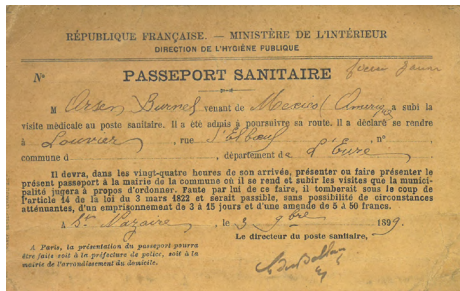 RÉPUBLIQUE FRANÇAISE. — MINISTÈRE DE L'INTÉRIEUR
DIRECTION DE L'HYGIÈNE PUBLIQUE
N° PASSEPORT SANITAIRE
M Burnel venant de a subi la
visite médicale au poste sanitaire. Il a été admis à poursuivre sa route. Il a déclaré se rendre
à Louvier, rue d'Elbœuf n°
commune d , département de L'Eure
Il devra, dans les vingt-quatre heures de son arrivée, présenter ou faire présenter le
présent passeport à la mairie de la commune où il se rend et subir les visites que la munici-
palité jugera à propos d'ordonner. Faute par lui de ce faire, il tomberait sous le coup de
l'article 14 de la loi du 3 mars 1822 et serait passible, sans possibilité de circonstances
atténuantes, d'un emprisonnement de 3 à 15 jours et d'une amende de 5 à 50 francs.
A St Nazaire, le 3 9bre 1899.
A Paris, la présentation du passeport pourra
être faite soit à la préfecture de police, soit à la
mairie de l'arrondissement du domicile.
Le directeur du poste sanitaire,